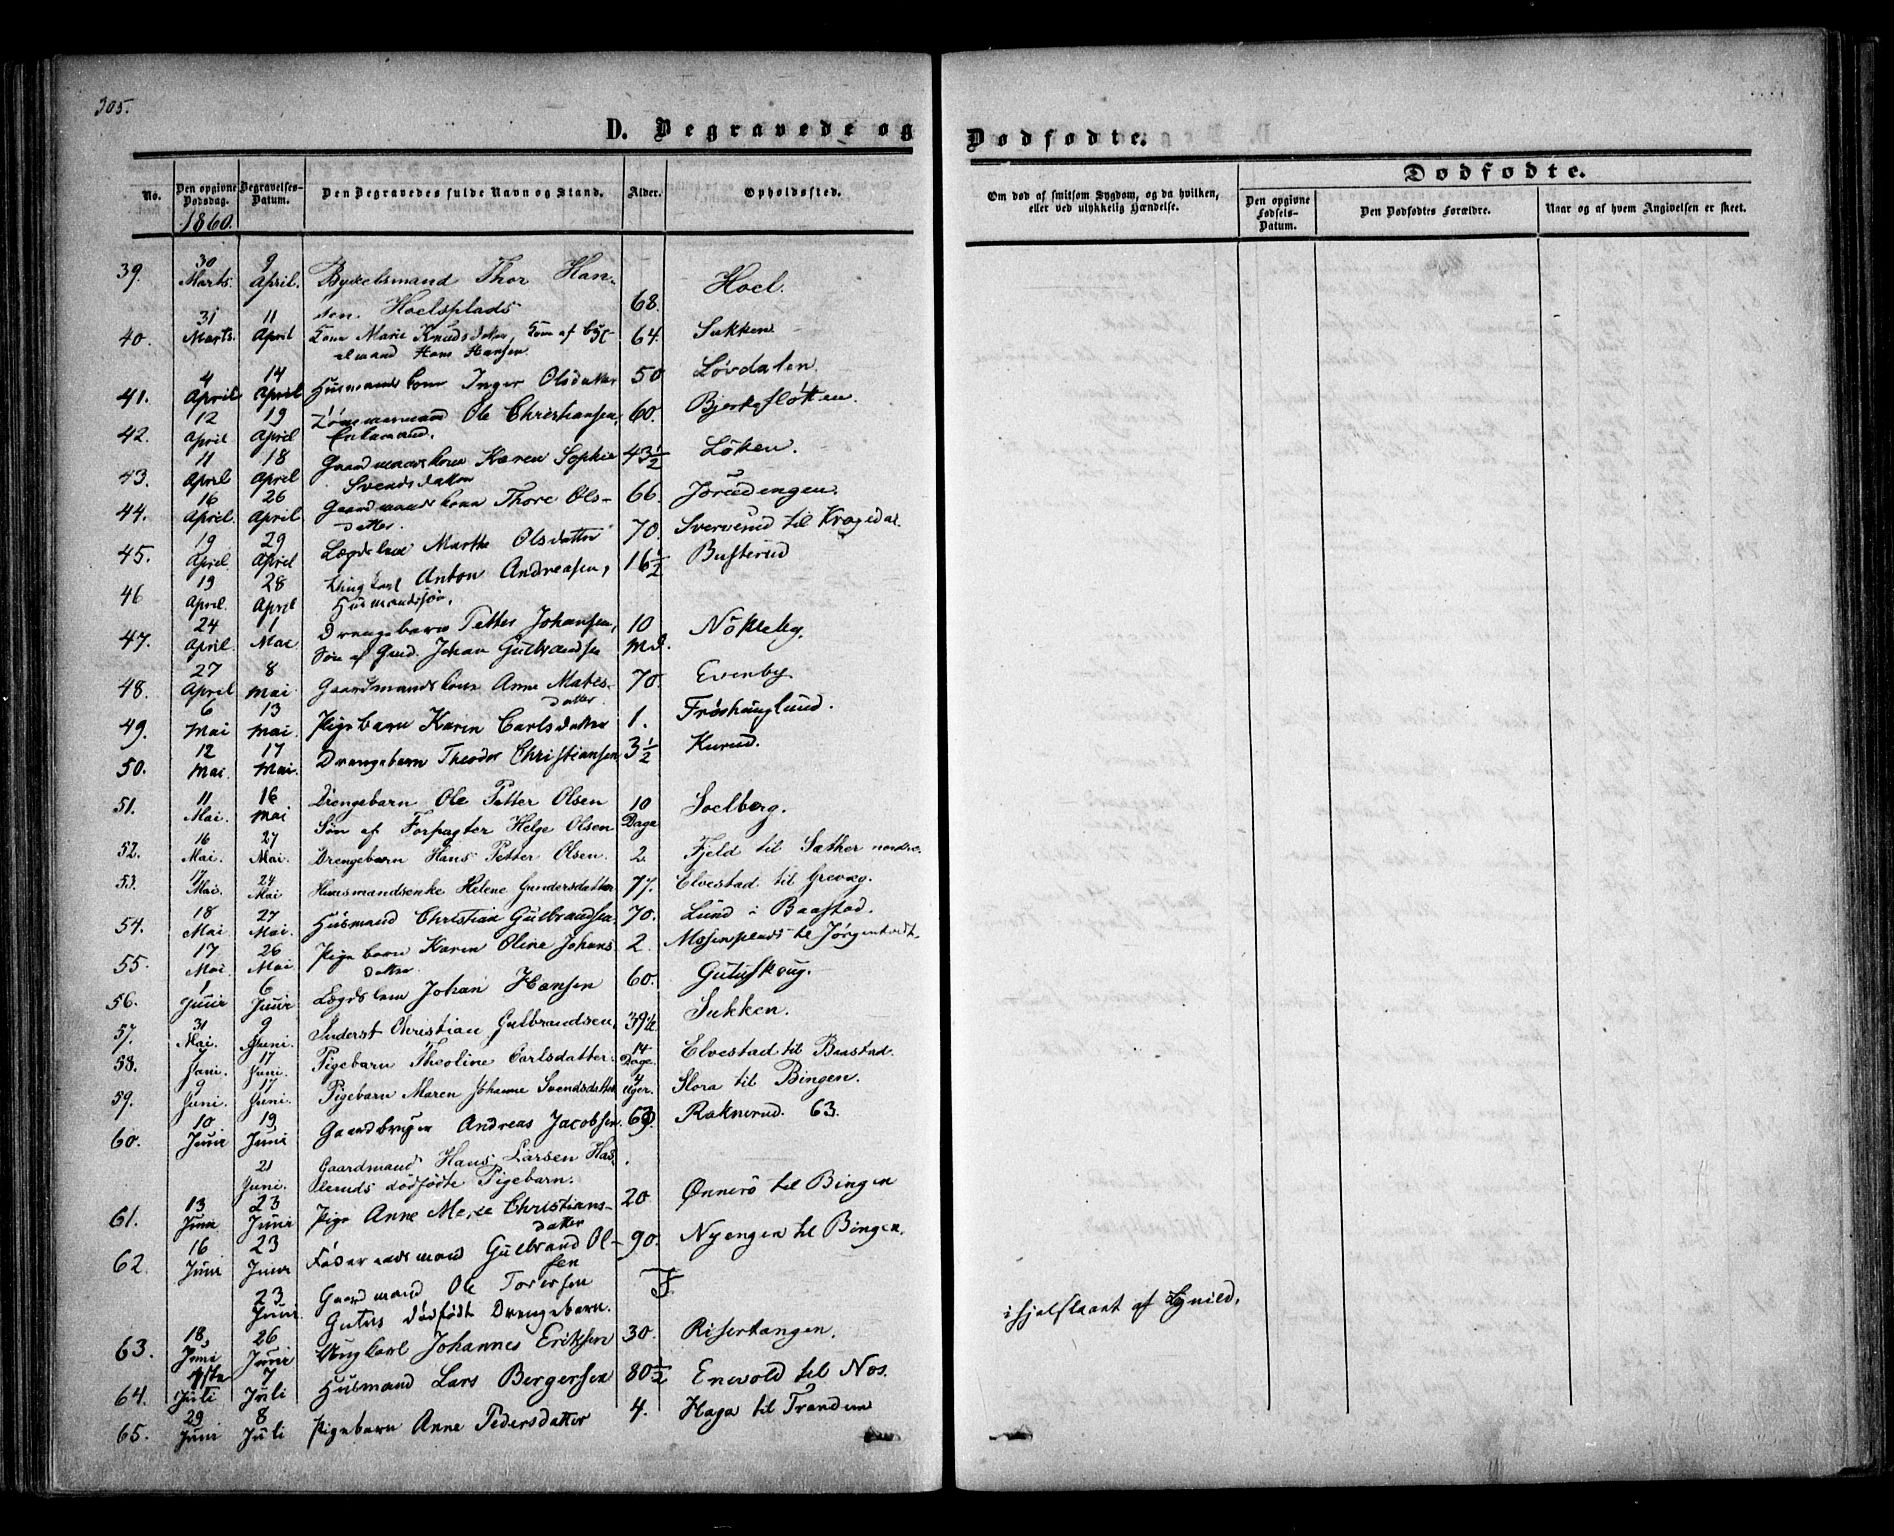 305.
D. Begravede og
Dødfødte.
No.
Den opgivne Dødsdag.
Begravelses-Datum.
Den Begravedes fulde Navn og Stand.
Alder.
Opholdssted.
Om død af smitsom Sygdom, og da hvilken, eller ved ulykkelig Hændelse.
Dødfødte.
Den opgivne Fødsels-Datum.
Den Dødfødtes Forældre.
Naar og af hvem Angivelsen er skeet.
1860.
39. 30 Marts. 9 April. Bykelsmand Thor Han-
sen. Hoelsplads 68. Hoel.
40. 31 Marts. 11 April Kone Marie Knudsdatter, Kone af
Hans Hansen. 64. Sukken.
41. 4 April 14 April Husmandskone Inger Olsdatter 50 Løvdalen.
42. 12 April 19 April Tømmermand Ole Christiansen,
Enkemand. 60. Bjerkefløtten.
43. 11 April 18 April Gaardmandskone Karen Sophie
Svendsdatter 43 1/2 Løken.
44. 16 April. 26 April Gaardmandskone Thore Ols-
datter. 66. Jorudengen.
45. 19 April. 29 April Lægdslem Marthe Olsdatter 70. Sververud til Kragedal.
46 19 April. 28 April Ungkarl Anton Andreasen,
Husmandssøn. 16 1/2 Busterud
47. 24 April. 1 Mai Drengebarn Petter Johansen,
Søn af Gmd. Johan Gulbrandsen 10 Md. Nökleby.
48. 27 April 8 Mai. Gaardmandskone Anne Mates-
datter. 70. Evenby.
49. 6 Mai 13 Mai. Pigebarn Karen Carlsdatter 1. Frøshauglund.
50. 12 Mai. 17 Mai. Drengebarn Theodor Christiansen 3 1/2 Kurud.
51. 11 Mai. 16 Mai Drengebarn Ole Petter Olsen
Søn af Forpagter Helge Olsen 10 Dage Soelberg.
52. 16 Mai. 27 Mai. Drengebarn Hans Petter Olsen. 2. Fjeld til Sæther nordre.
53. 17 Mai. 24 Mai Huusmandsenke Helene Gundersdatter 77. Elvestad til Grevæg.
54. 18 Mai 27 Mai. Husmand Christian Gulbrandsen 70. Lund i Baastad.
55. 17 Mai 26 Mai Pigebarn Karen Oline Johans
datter. 2. Mosenplads til Jørgentvedt.
56. 1 Juni 6 Juni Lægdslem Johan Hansen 60. Gutuskoug.
57. 31 Mai. 9 Juni. Inderst Christian Gulbrandsen, 39 1/2 Sukken.
58. 7 Juni. 17 Juni. Pigebarn Theoline Carlsdatter. 14 Dage. Elvestad til Baastad.
59. 9 Juni. 17 Juni. Pigebarn Maren Johanne Svendsdatter 4 Uger. Slora til Bingen.
60. 10 Juni 19 Juni Gaardbruger Andreas Jacobsen 63. Raknerud. 63.
21 Juni. Gaardmand Hans Larsen Has-
leruds dödfödte Pigebarn.
61. 13 Juni 23 Juni Pige Anne Marie Christians-
datter 20. Ønnerö til Bingen
62. 16 Juni 23 Juni Føderaadsmand Gulbrand Ol-
sen 90. Nyengen til Bingen.
23 Juni Gaardmand Ole Toresen
Gutus dødfödt Drengebarn.
63. 18 Juni 26 Juni Ungkarl Johannes Eriksen 30. Risertangen. ihjelslaaet af Lynild.
64. 1ste Juli 7 Juli Husmand Lars Bergersen 80 1/2 Enevold til Nos.
65. 29 Juni 8 Juli Pigebarn Anne Pedersdatter 4. Haga til Trandum